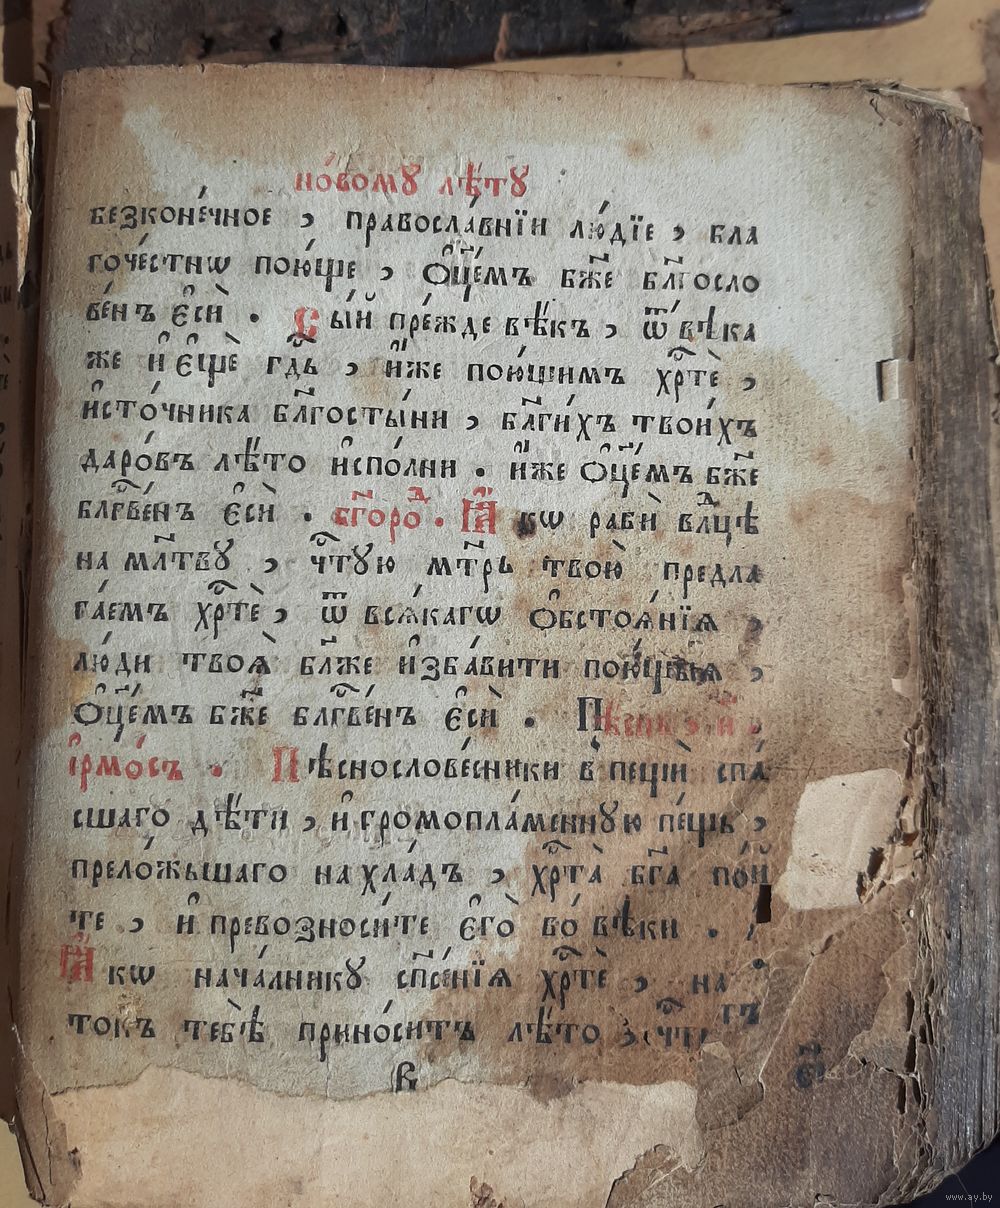 но́вому лѣ́ту
безконе́чное , правосла́внїи лю́дїе , бла
гоче́стнѡ пою́ще , ѻ҆ц҃е́мъ бж҃е бл҃госло
ве́нъ є҆сѝ . Сы́й пре́жде вѣ́къ , ѿ вѣ́ка
же и҆ є҆щѐ гд҇ь , и҆́же пою́щимъ хрⷭ҇тѐ ,
и҆сто́чника бл҃госты́ни , бл҃ги́хъ твои́хъ
даро́въ лѣ́то и҆спо́лни . и҆́же ѻ҆ц҃е́мъ бж҃е
блгⷭ҇ве́нъ є҆сѝ . бг҃оро́д . Ꙗ҆́кѡ рабѝ влⷣцѣ
на мл҃тву , чⷭ҇тую мт҃рь твою̀ предла
га́емъ хрⷭ҇тѐ , ѿ всѧ́кагѡ ѻ҆бстоѧ́нїѧ ,
лю́ди твоѧ̀ бл҃же и҆зба́вити пою́щыѧ ,
ѻ҆ц҃е́мъ бж҃е блгⷭ҇ве́нъ є҆сѝ . Пѣснь , и҃ .
і҆рмо́съ . Пѣснослове́сники в̾ пещѝ спа́
сшаго дѣ́ти , и҆ громопла́менную пе́щь ,
прело́жьшаго на хла́дъ , хрⷭ҇та̀ бг҃а по́й
те , и҆ превозноси́те є҆го̀ во́ вѣки .
Ꙗ҆́кѡ нача́лнику спⷭ҇е́нїѧ хрⷭ҇тѐ , на
токъ тебѣ̀ прино́ситъ лѣ́то
в